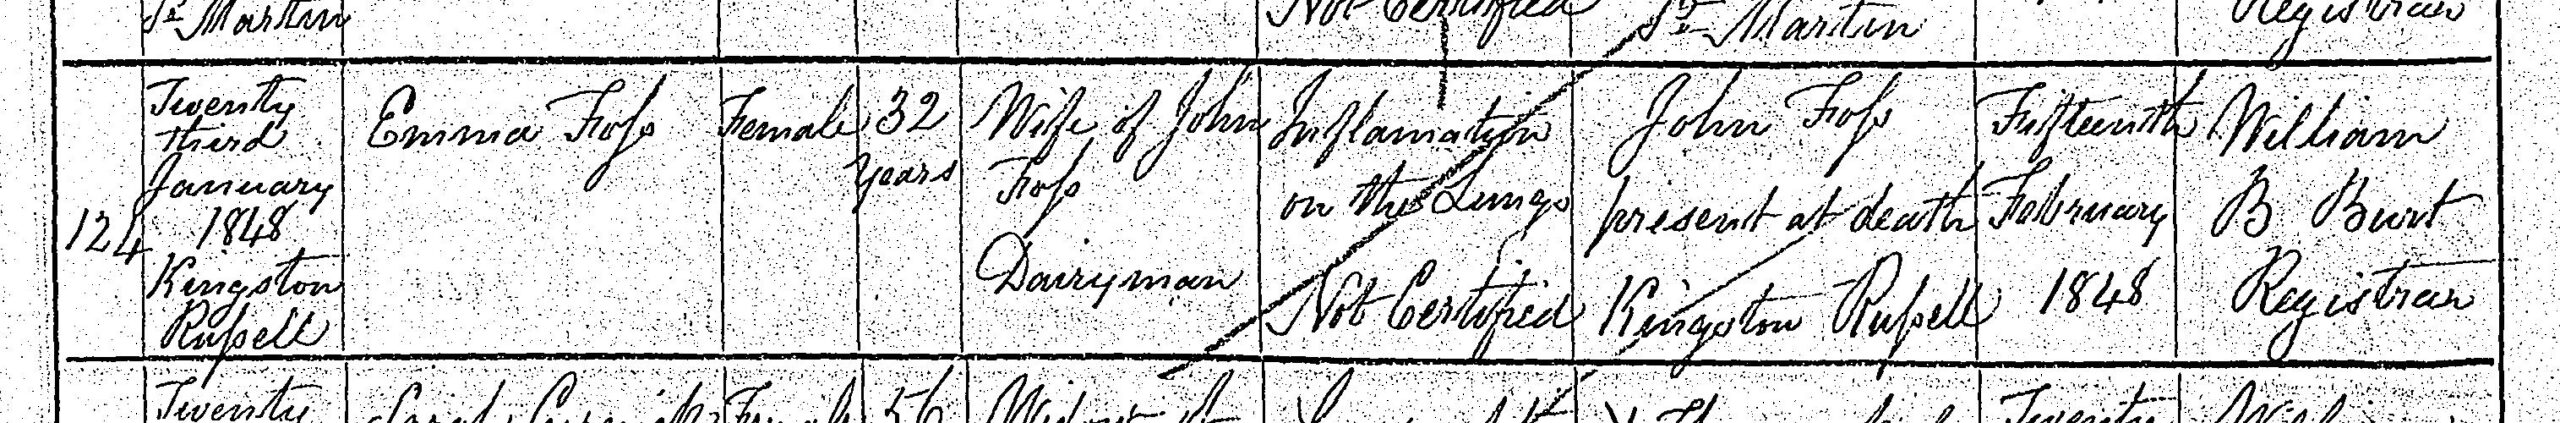 St Martin
Not Certified
St Martin
Registrar
124
Twenty
third
January
1848
Kingston
Rußell
Emma Foß
Female
32
years
Wife of John
Foß
Dairyman
Inflamation
on the Lungs
Not Certified
John Foß
present at death
Kingston Rußell
Fifteenth
February
1848
William
B Burt
Registrar
Twenty
Sarah
Female
56
Widow
Twenty
William